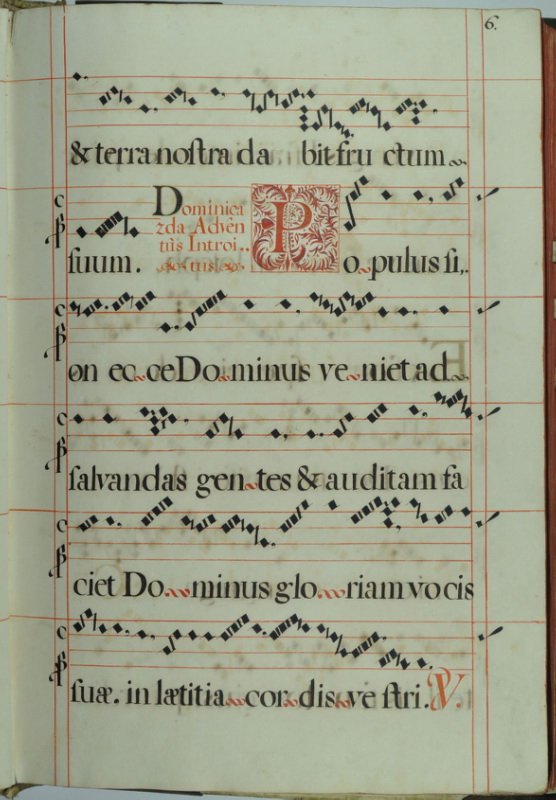 6.
& terra noſtra da bit fru ctum
Dominica
2da Adven
tûs Introi..
tus
ſuum. Populus ſi,.
on ec ce Do minus ve niet ad
ſalvandas gen tes & auditam fa
ciet Do minus glo riam vo cis
ſuæ. in lætitia cor dis ve ſtri. V.